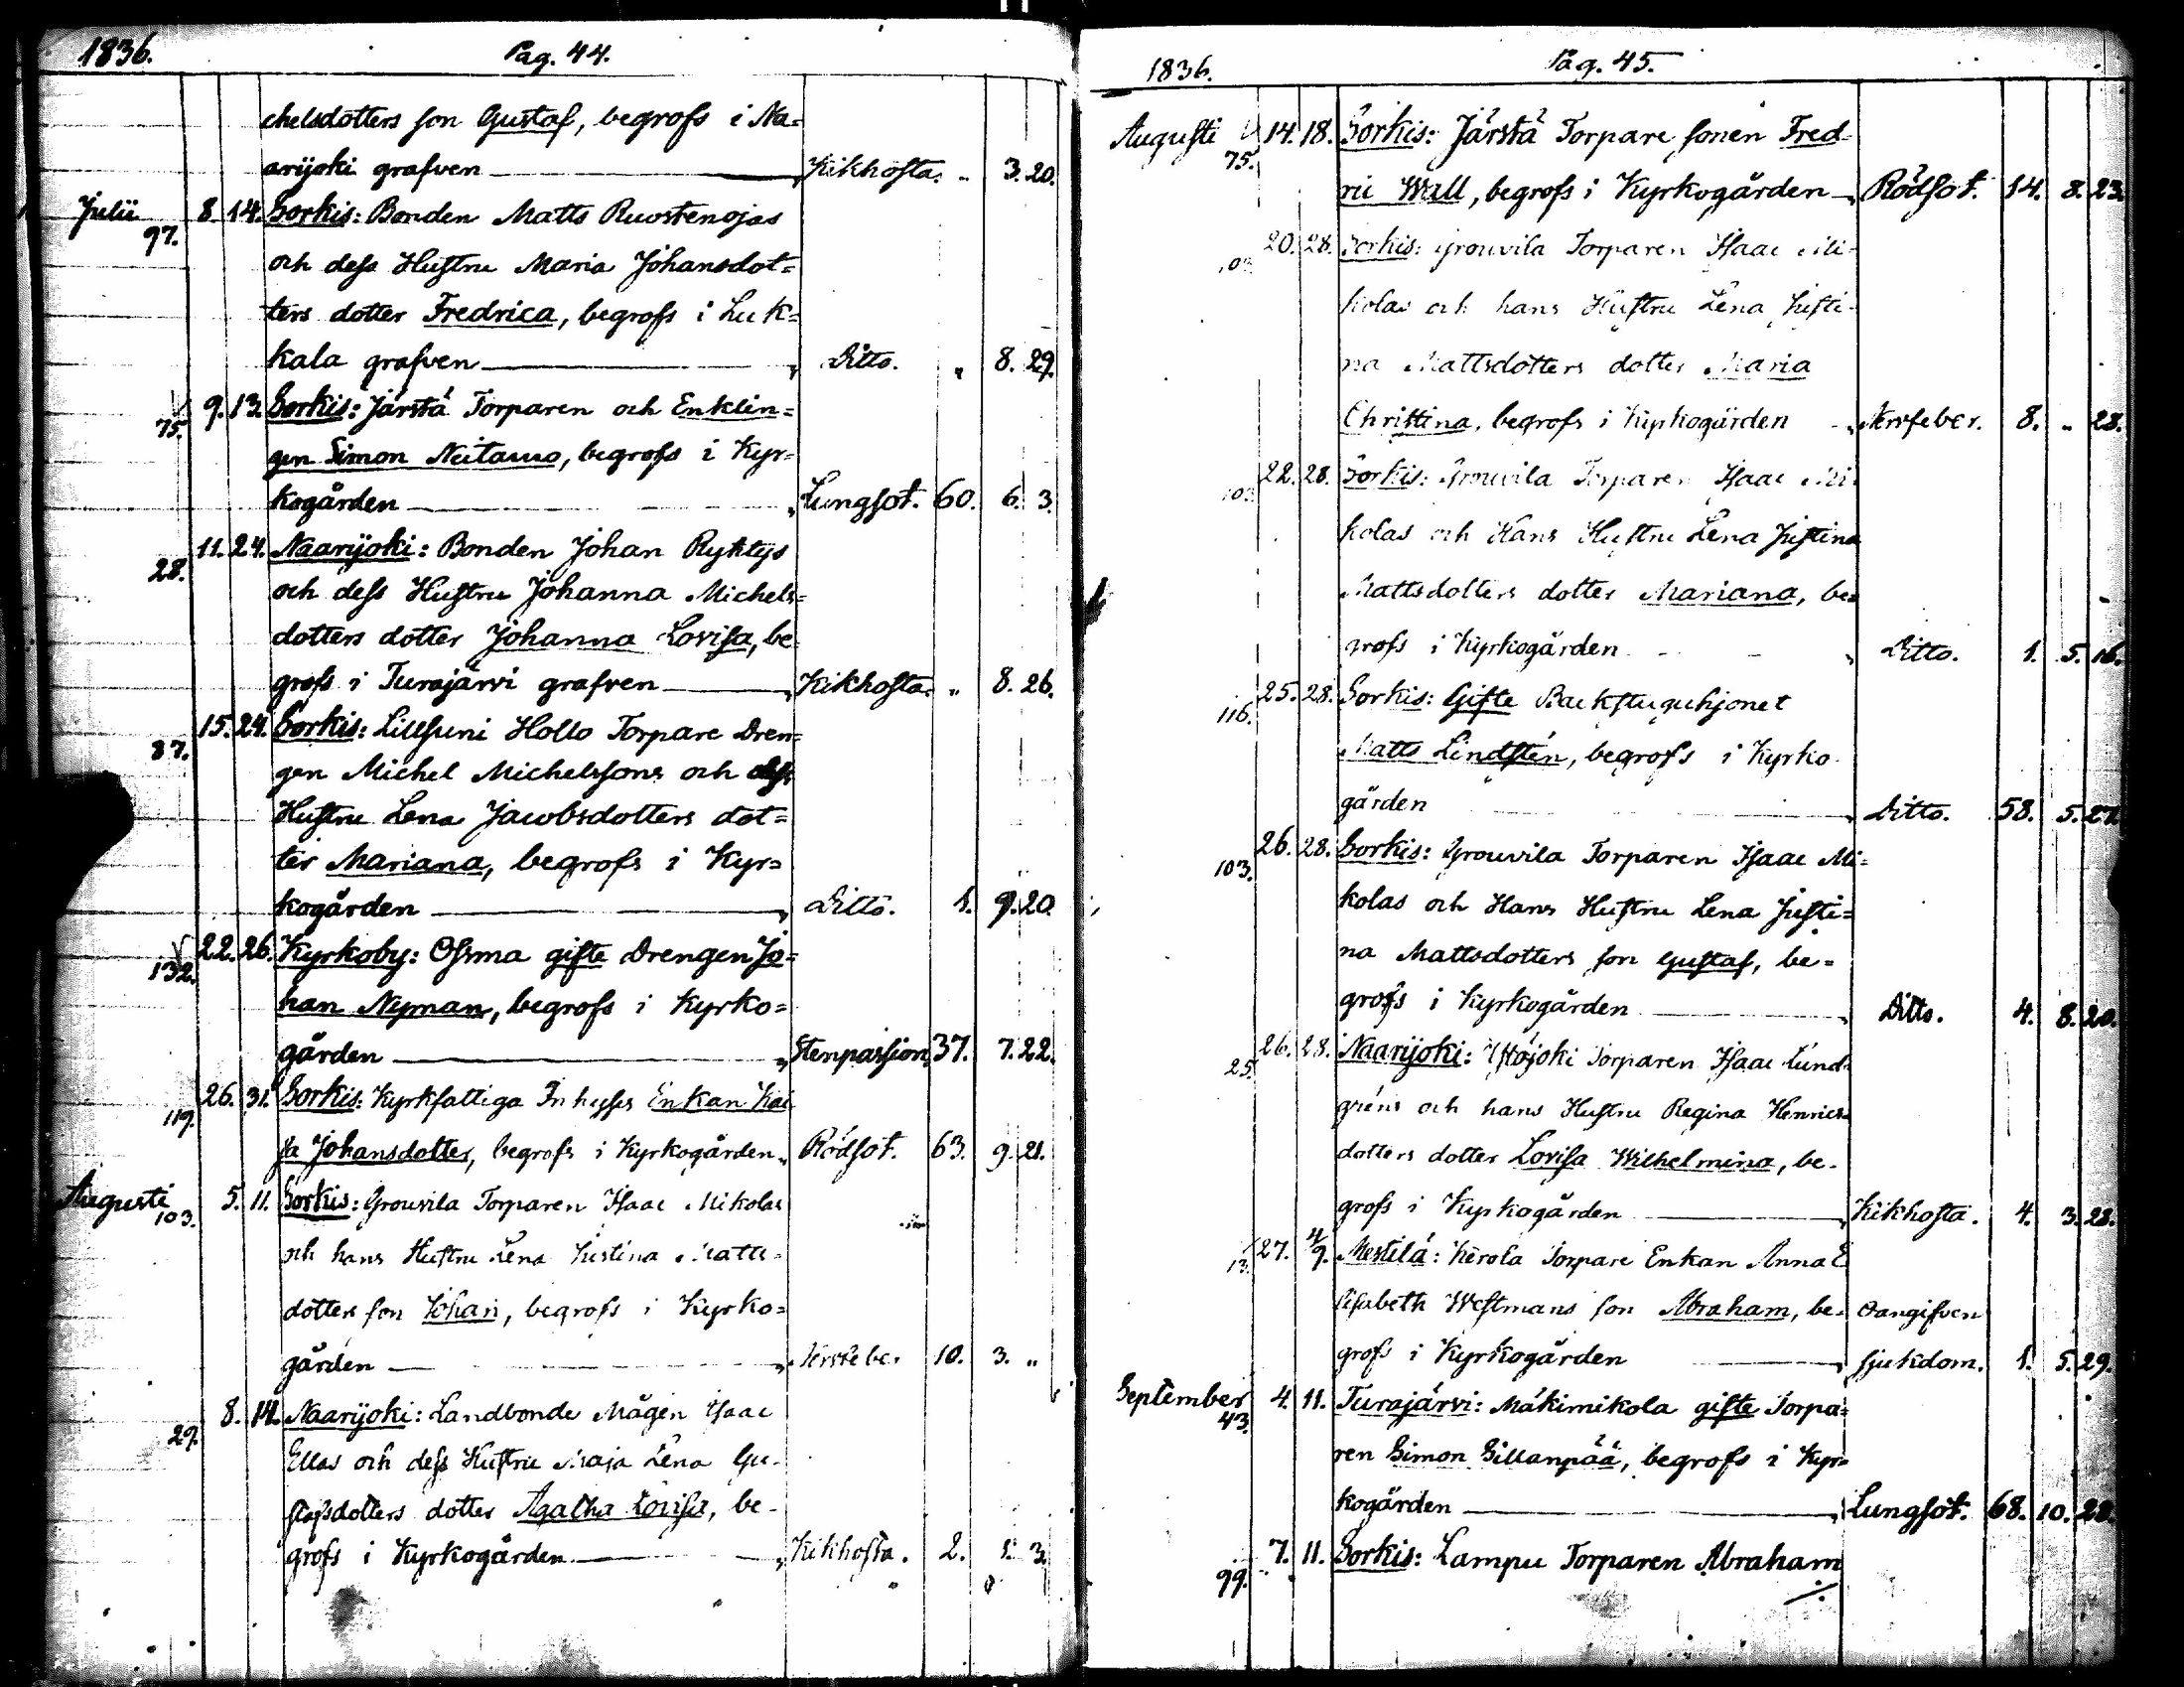 1836. Pag. 44.
chelsdotters son Gustaf, begrofs i Na=
arijoki grafven Kikhosta. " 3. 20.
Julii 97. 8. 14. Sorkis: Bonden Matts Ruostenojas
och dess Hustru Maria Johansdot=
ters dotter Fredrica, begrofs i Luk=
kala grafven Ditto. " 8. 29.
75. 9. 13. Sorkis: Järstä Torparen och Enklin=
gen Simon Neitamo, begrofs i Kyr=
kogården Lungsot. 60. 6. 3.
28. 11. 24. Naarijoki: Bonden Johan Ryktys
och dess Hustru Johanna Michels=
dotters dotter Johanna Lovisa, be
grofs i Turajärvi grafven Kikhosta. " 8. 26.
87. 15. 24. Sorkis: Lillsuni Hollo Torpare Dren=
gen Michel Michelssons och dess
Hustru Lena Jacobsdotters dot=
ter Mariana, begrofs i Kyr=
kogården Ditto. 1. 9. 20.
132. 22. 26. Kyrkoby: Ossma gifte Drengen Jo=
han Nyman, begrofs i Kyrko=
gården Stenpassion, 37. 7. 22.
119. 26. 31. Sorkis: Kyrkfattiga Inhyses Enkan Kai
sa Johansdotter, begrofs i Kyrkogården Rödsot. 63. 9. 21.
Augusti 103. 5. 11. Sorkis: Grouvila Torparen Isaac Mikolas
och hans Hustru Lena Justina Matts=
dotters son Johan, begrofs i Kyrko=
gården Nerfeber 10. 3. "
29. 8. 14. Naarijoki: Landbonde Mågen Isaac
Ellas och dess Hustru Maja Lena Gu-
stafsdotters dotter Agatha Lovisa, be-
grofs i Kyrkogården Kikhosta. 2. 1. 3.
1836. Pag. 45.
Augusti 75. 14. 18. Sorkis: Järstä Torpare sonen Fred-
ric Wall, begrofs i Kyrkogården Rödsot. 14. 8. 23.
103. 20. 28. Sorkis: Grouvila Torparen Isaac Mi-
kolas och hans Hustru Lena Justi-
na Mattsdotters dotter Maria
Christina, begrofs i Kyrkogården Nerfeber. 8. " 28.
103. 22. 28. Sorkis: Grouvila Torparen Isaac Mi
kolas och Hans Hustru Lena Justina
Mattsdotters dotter Mariana, be=
grofs i Kyrkogården Ditto. 1. 5. 16.
116. 25. 28. Sorkis: Gifte Backstuguhjonet
Matts Lindstén, begrofs i Kyrko
gården Ditto. 58. 5. 27.
103. 26. 28. Sorkis: Grouvila Torparen Isaac Mi=
kolas och Hans Hustru Lena Justi=
na Mattsdotters son Gustaf, be=
grofs i Kyrkogården Ditto. 4. 8. 20.
25. 26. 28. Naarijoki: Torparen Isaac Lund-
gréns och hans Hustru Regina Henrics
dotters dotter Lovisa Wilhelmina, be-
grofs i Kyrkogården Kikhosta. 4. 3. 28.
13. 27. 4/9. Mestilä: Kerola Torpare Enkan Anna E
lisabeth Westmans son Abraham, be- Oangifven
grofs i Kyrkogården sjukdom. 1. 5. 29.
September 43. 4. 11. Turajärvi: Mäkimikola gifte Torpa=
ren Simon Sillanpää, begrofs i Kyr=
kogården Lungsot. 68. 10. 28.
99. 7. 11. Sorkis: Lampu Torparen Abraham